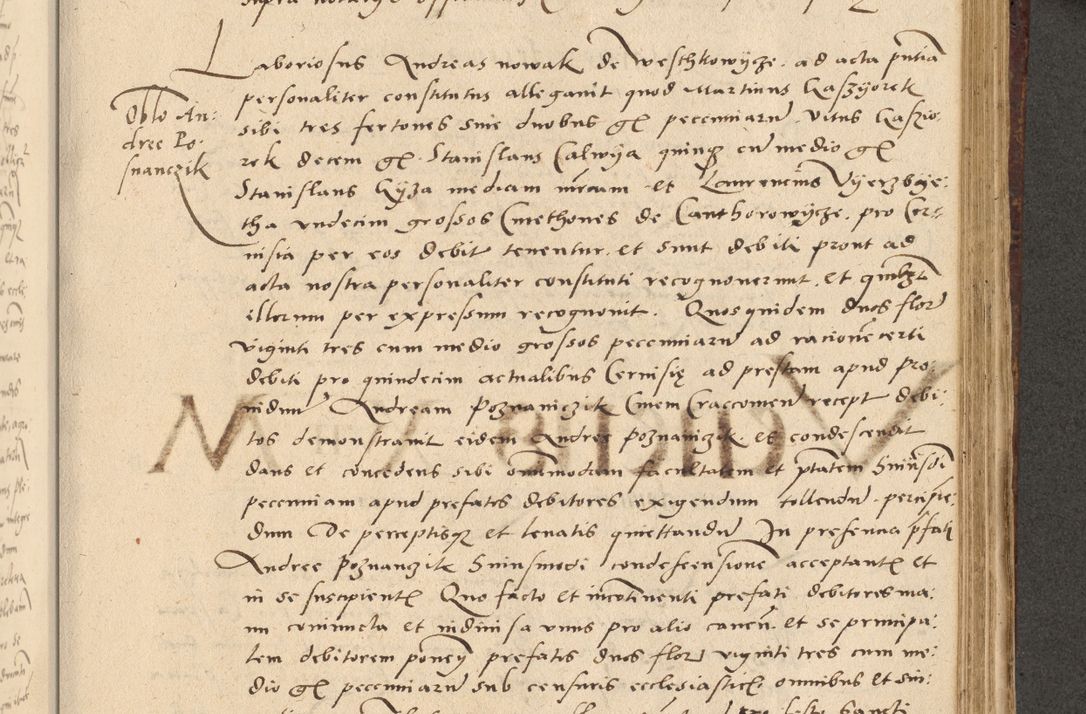 Laboriosus Andreas nowak de weschkowÿcze ad acta pntia
personaliter constitutus allegavit quod Martinus Kaszÿorek
sibi tres fertones sive duobus gr pecuniaru Vitus Kaszio
rek decem gr Stanislaus Calwÿa quinqz cu medio gr
Stanislaus Gÿza mediam mrcam et Laurencius Vÿerzbÿe:
tha undecim grossos Cmethones de Canthorowÿcze pro Cer:
visia per eos debit tenentur et sunt debiti prout ad
acta nostra personaliter constituti recognoverunt et quilbet
illorum per expressum recognovit. Quosquidem duos flor
viginti tres cum medio grossos pecuniaru ad racione certi
debiti pro quindecim actualibus Cervisię ad prestam apud Pro:
vidum Andream Poznaniczik Civem Craccovien recept debi:
tos demonstravit eidem Andree Poznaniczik et condescendit
dans et concedens sibi omnimodam facultatem et ptatem huiusdi
pecuniam apud prefatos debitores exigendum tollendu percipie:
dum De perceptisqz et levatis quiettandu In presencia pfati
Andree Poznanczik huiusmodi condescensione acceptantis et
in se suscipientis Quo facto et incotinenti prefati debitores ma:
nu coniuncta et indivisa unus pro alio caven et se principa:
lem debitorem ponen prefatos duos flor viginti tres cum me:
dio gr pecuniaru sub censuris ecclesiasticis omnibus et sin:
Oblo An:
dree Po:
snanczik